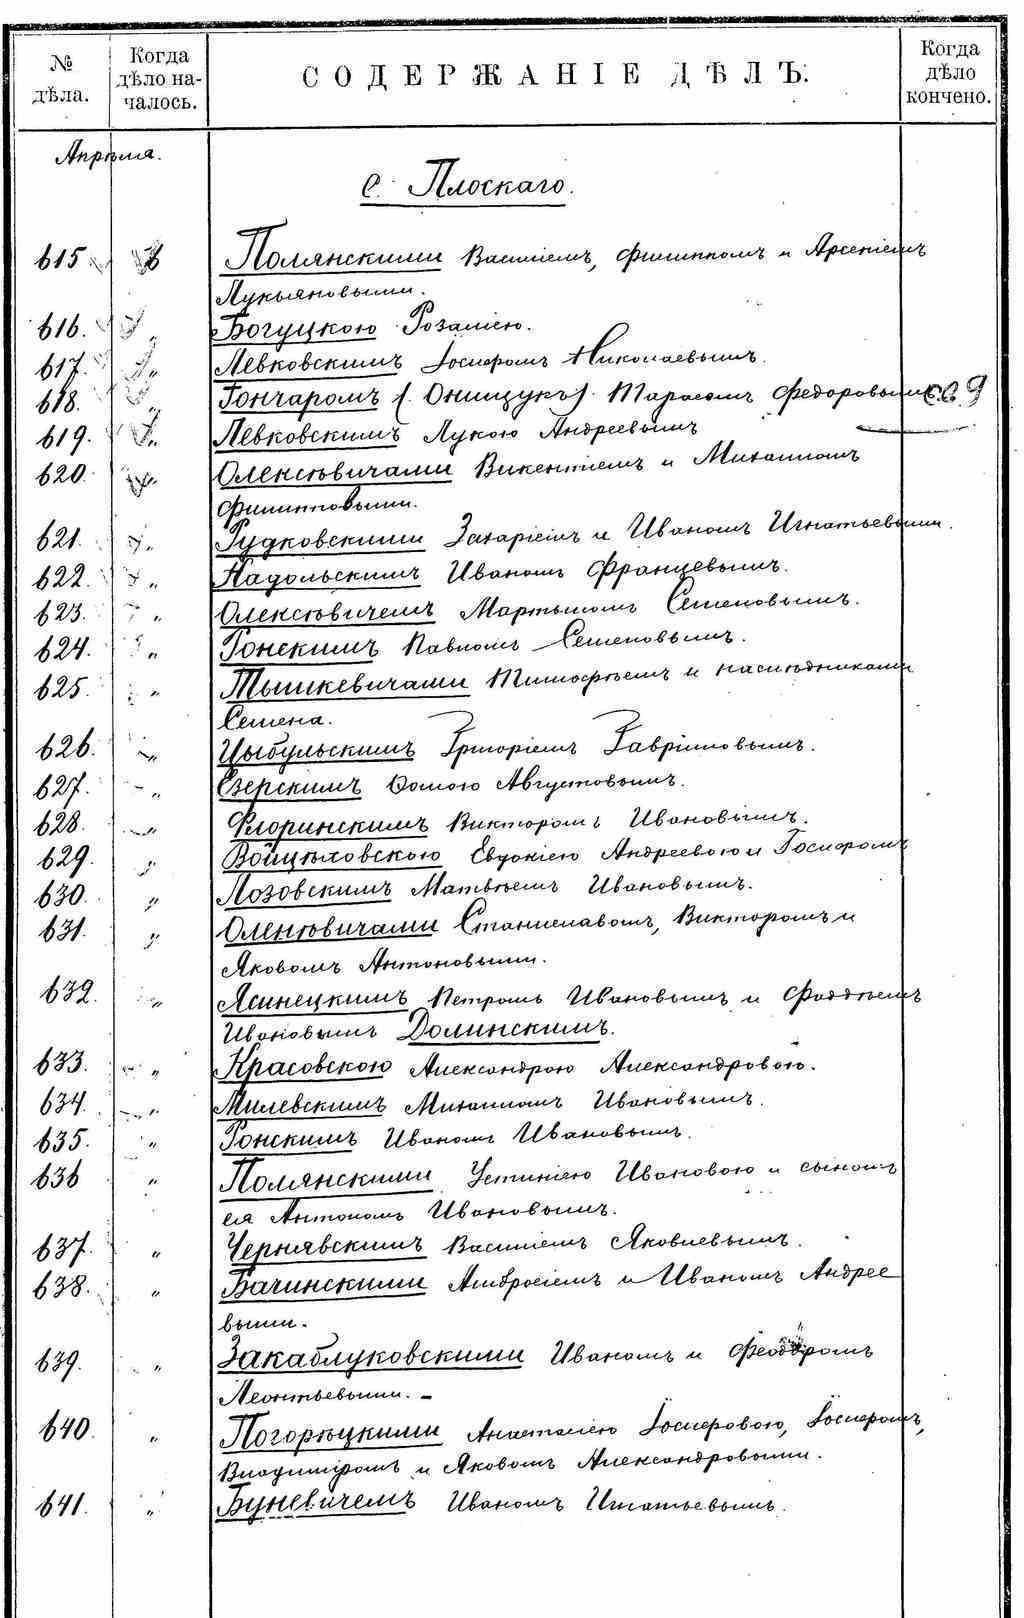 № дѣла.
Когда дѣло на-чалось.
СОДЕРЖАНІЕ ДѢЛЪ.
Когда дѣло кончено.
Апрѣля.
с. Плоскаго.
615 6 Полянскими Василіемъ, Филиппомъ и Арсеніемъ
Лукьяновыми.
616. „ Богуцкою Розаліею.
617. „ Левковскимъ Іосифомъ Николаевымъ.
618. „ Гончаромъ (Онищукъ). Тарасомъ Федоровымъ.
619. „ Левковскимъ Лукою Андреевымъ
620. „ Олексѣвичами Викентіемъ и Михаиломъ
Филипповыми.
621. „ Рудковскими Захаріемъ и Иваномъ Игнатьевыми.
622. „ Надольскимъ Иваномъ Францевымъ.
623. „ Олексѣвичемъ Мартыномъ Семеновымъ.
624. „ Ронскимъ Павломъ Семеновымъ.
625. „ Тышкевичами Тимофѣемъ и наслѣдниками
Семена.
626. „ Цыбульскимъ Григоріемъ Гавріиловымъ.
627. „ Езерскимъ Фомою Августовымъ.
628. „ Флоринскимъ Викторомъ Ивановымъ.
629. „ Войцѣховскою Евдокіею Андреевою и Іосифомъ
630. „ Лозовскимъ Матвѣемъ Ивановымъ.
631. „ Станиславомъ, Викторомъ и
Яковомъ Антоновыми.
632. „ Ясинецкимъ Петромъ Ивановымъ и Фаддѣемъ
Ивановымъ Долинскимъ.
633. „ Красовскою Александрою Александровою.
634. „ Милевскимъ Михаиломъ Ивановымъ.
635. „ Ронскимъ Иваномъ Ивановымъ.
636 „ Полянскими Устиніею Ивановою и сыномъ
ея Антономъ Ивановымъ.
637. „ Чернявскимъ Василіемъ Яковлевымъ.
638. „ Бачинскими Амвросіемъ и Иваномъ Андрее
выми.
639. „ Закаблуковскими Иваномъ и Феодоромъ
Леонтьевыми. –
640. „ Погорѣцкими Анастасіею Іосифовою, Іосифомъ,
Владиміромъ и Яковомъ Александровыми.
641. „ Буневичемъ Иваномъ Игнатьевымъ.